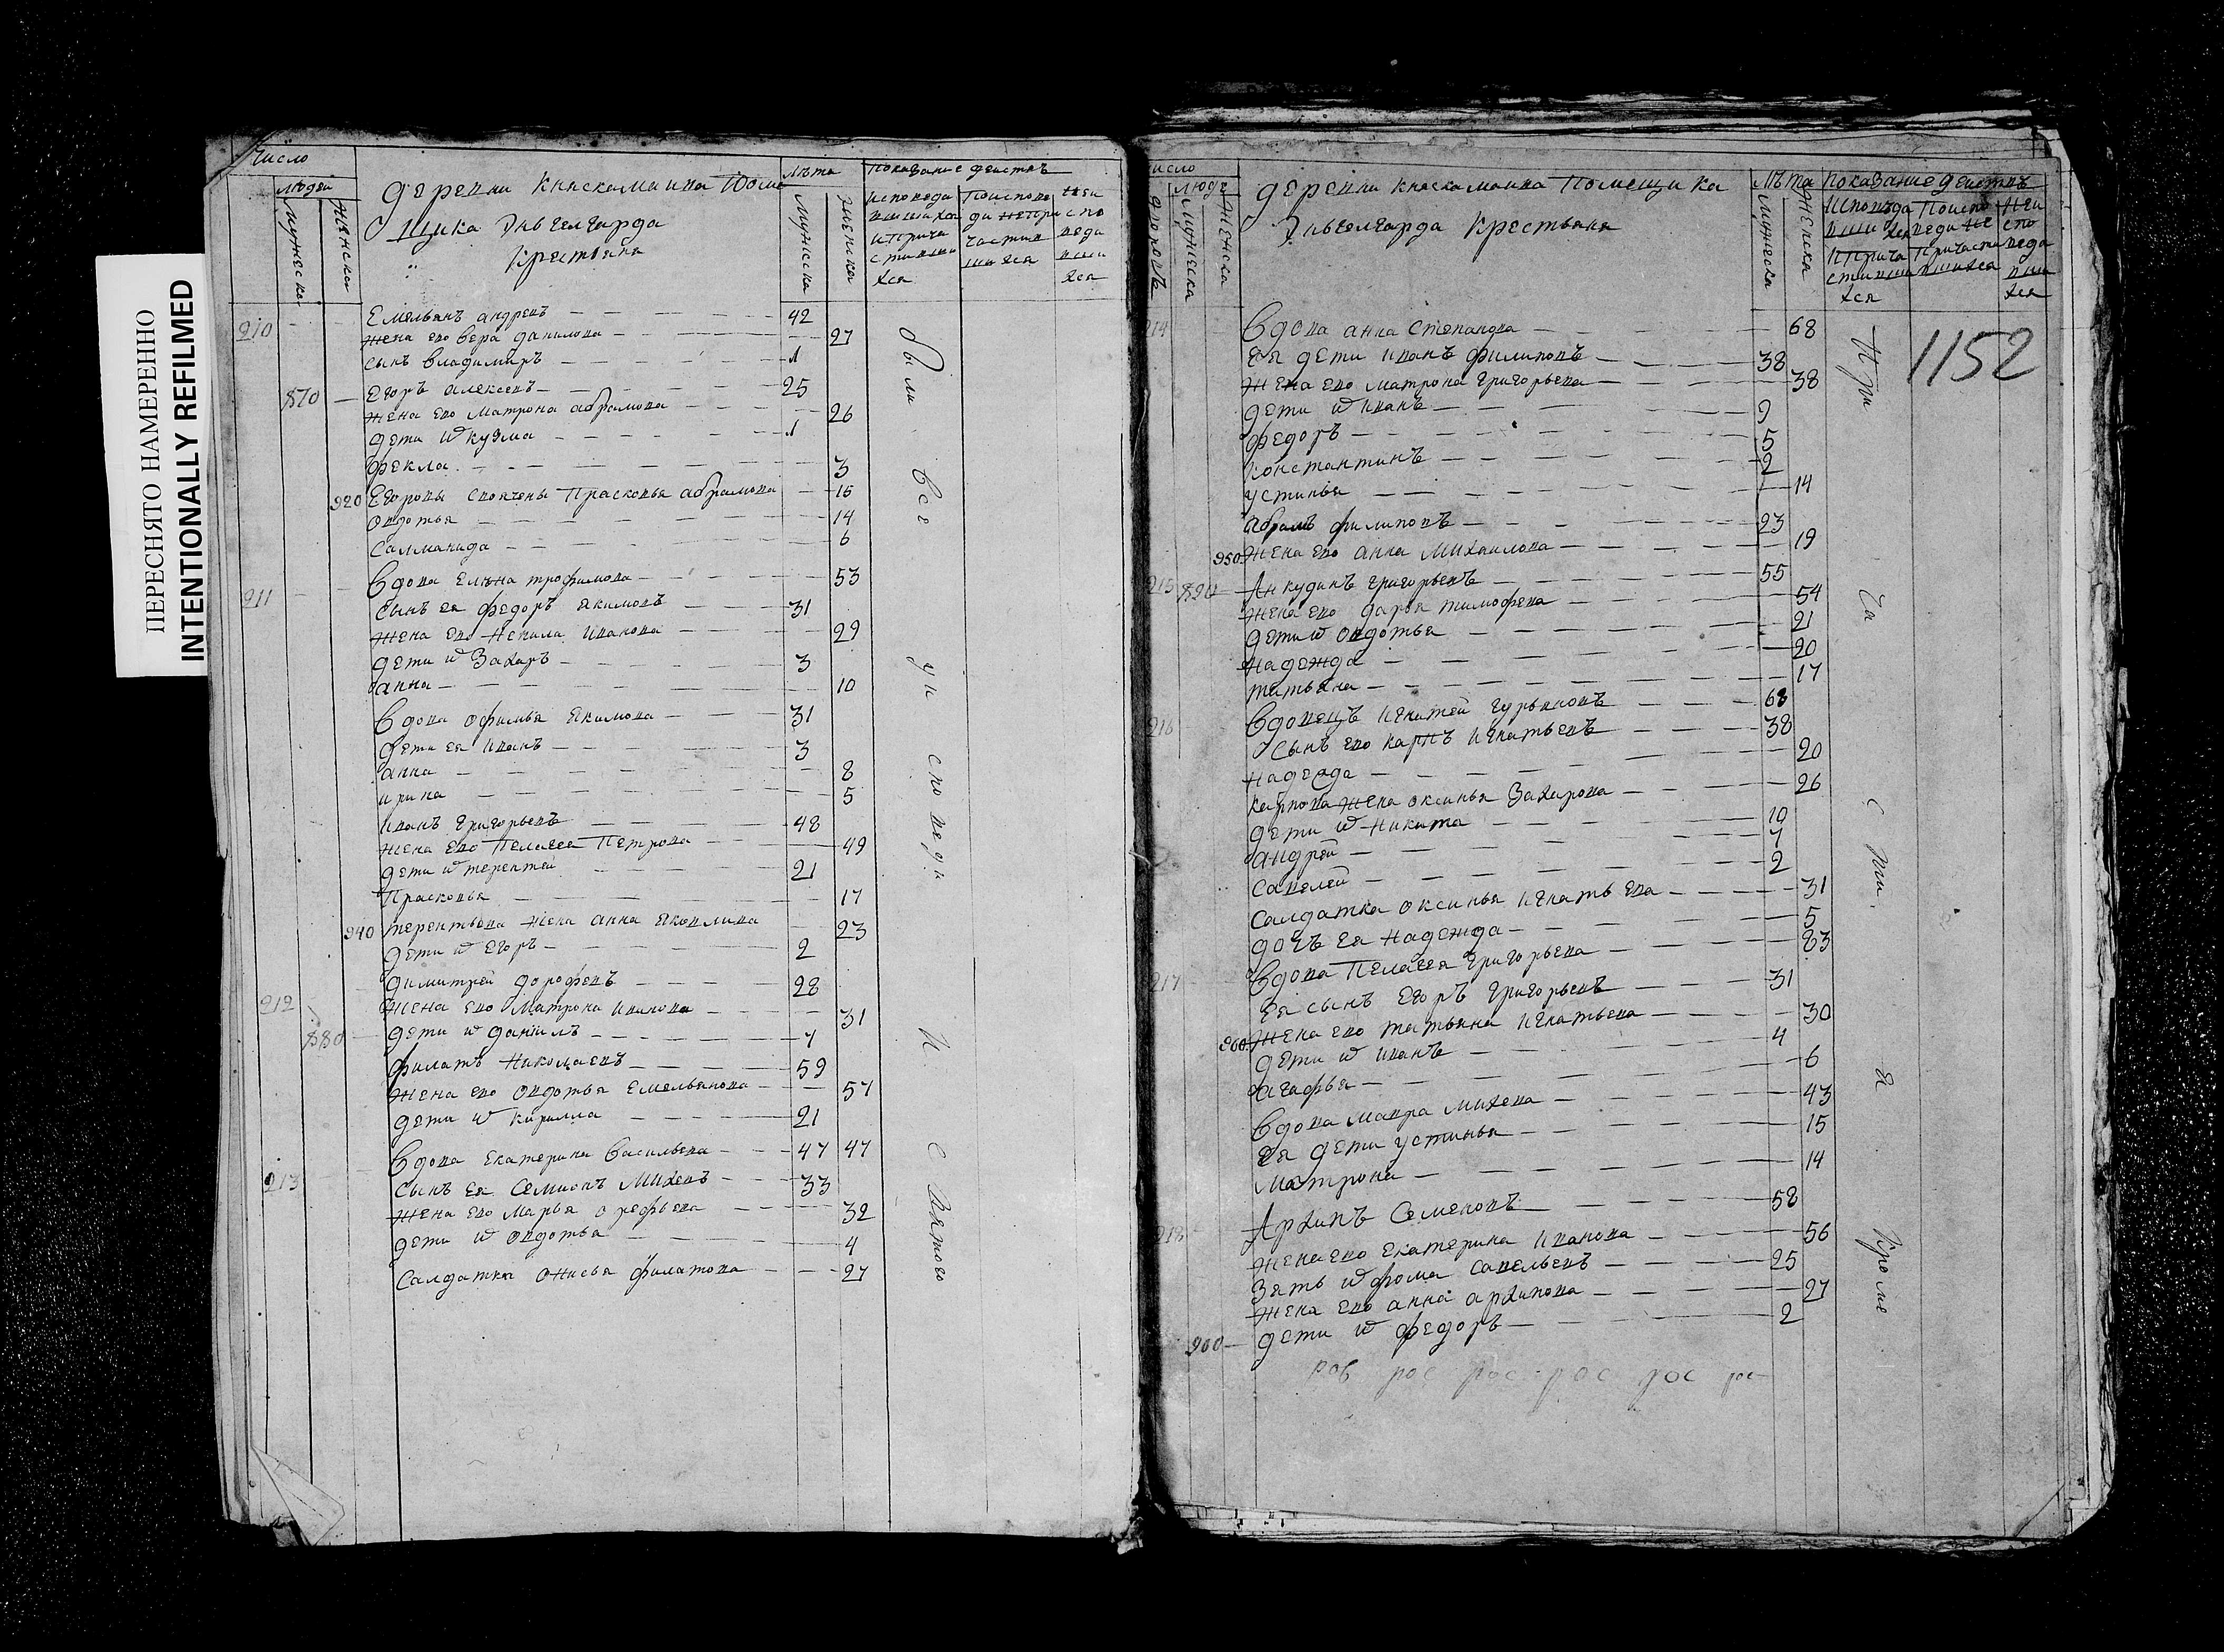 ПЕРЕСНЯТО НАМЕРЕННО
INTENTIONALLY REFILMED
Число
людей
мужеска
женска
деревни Княскамаива Поме
щика Энвегелгарда
крестьяне
лѣта
мужеска
женска
показание действъ
исповеда
вшихся
и прича
стивши
хся
поиспове
да непри
частив
шихся
неи
спо
веда
вши
хся
210 Емельянъ андревъ 42
жена ево вера данилова 27
сынъ владимиръ 1
870 Егоръ алексевъ 25
жена ево матрона абрамова 26
дети ихъ кузма 1
фекла 3
920 Егоровы своячены Прасковья абрамова 16
овдотья 14
саломанида 6
211 вдова елѣна трофимова 53
сынъ ея федоръ якимовъ 31
жена ево Иванова 29
дети ихъ Захаръ 3
анна 10
вдова офимья якимова 31
дети ея иванъ 3
анна 8
ирина 5
иванъ григорьевъ 48
жена ево Пелагея Петрова 49
дети ихъ терентей 21
Прасковья 17
940 терентьева жена анна яковлива 23
дети ихъ егоръ 2
212 димитрей дорофевъ 28
жена ево Матрона Иванова 31
880 дети ихъ данiилъ 7
филатъ Николаевъ 59
жена ево овдотья Емельянова 57
дети ихъ кирилла 21
213 вдова екатерина васильева 47 47
сынъ ея Семионъ Михевъ 33
жена ево марья орефьева 32
дети ихъ овдотья 4
салдатка онисья филатова 27
были все у исповеди и святого
число
дворовъ
людей
мужеска
женска
деревни княскамаива Помещика
Энвегелгарда крестьяне
лѣта
мужеска
женска
показание действъ
исповѣда
вшихся
и прича
стивши
хся
поиспо
веди не
причасти
вшихся
неи
спо
веда
вши
хся
1152
214 вдова анна степанова 68
ея дети иванъ филиповъ 38
жена ево матрона григорьева 38
дети ихъ иванъ 9
федоръ 5
константинъ 2
устинья 14
абрамъ филиповъ 23
950 жена ево анна михаилова 19
215 890 Анкудинъ григорьевъ 55
жена ево дарья тимофева 54
дети ихъ овдотья 21
надежда 20
татьяна 17
216 вдовецъ игнатей гурьяновъ 68
сынъ ево карпъ игнатьевъ 38
надежда 20
карпова жена оксинья Захарова 26
дети ихъ никита 10
андрей 7
савелей 2
салдатка оксинья игнатьева 31
дочь ея надежда 5
217 вдова Пелагея григорьева 63
ея сынъ егоръ григорьевъ 31
960 жена ево татьяна игнатьева 30
дети ихъ иванъ 4
агафья 6
вдова мавра михева 43
ея дети устинья 15
матрона 14
218 Архипъ Семеновъ 58
жена ево екатерина иванова 56
зять ихъ фома савельевъ 25
жена ево анна архипова 27
900 дети ихъ федоръ 2
при ча с ти я кроме
рос рос рос рос рос